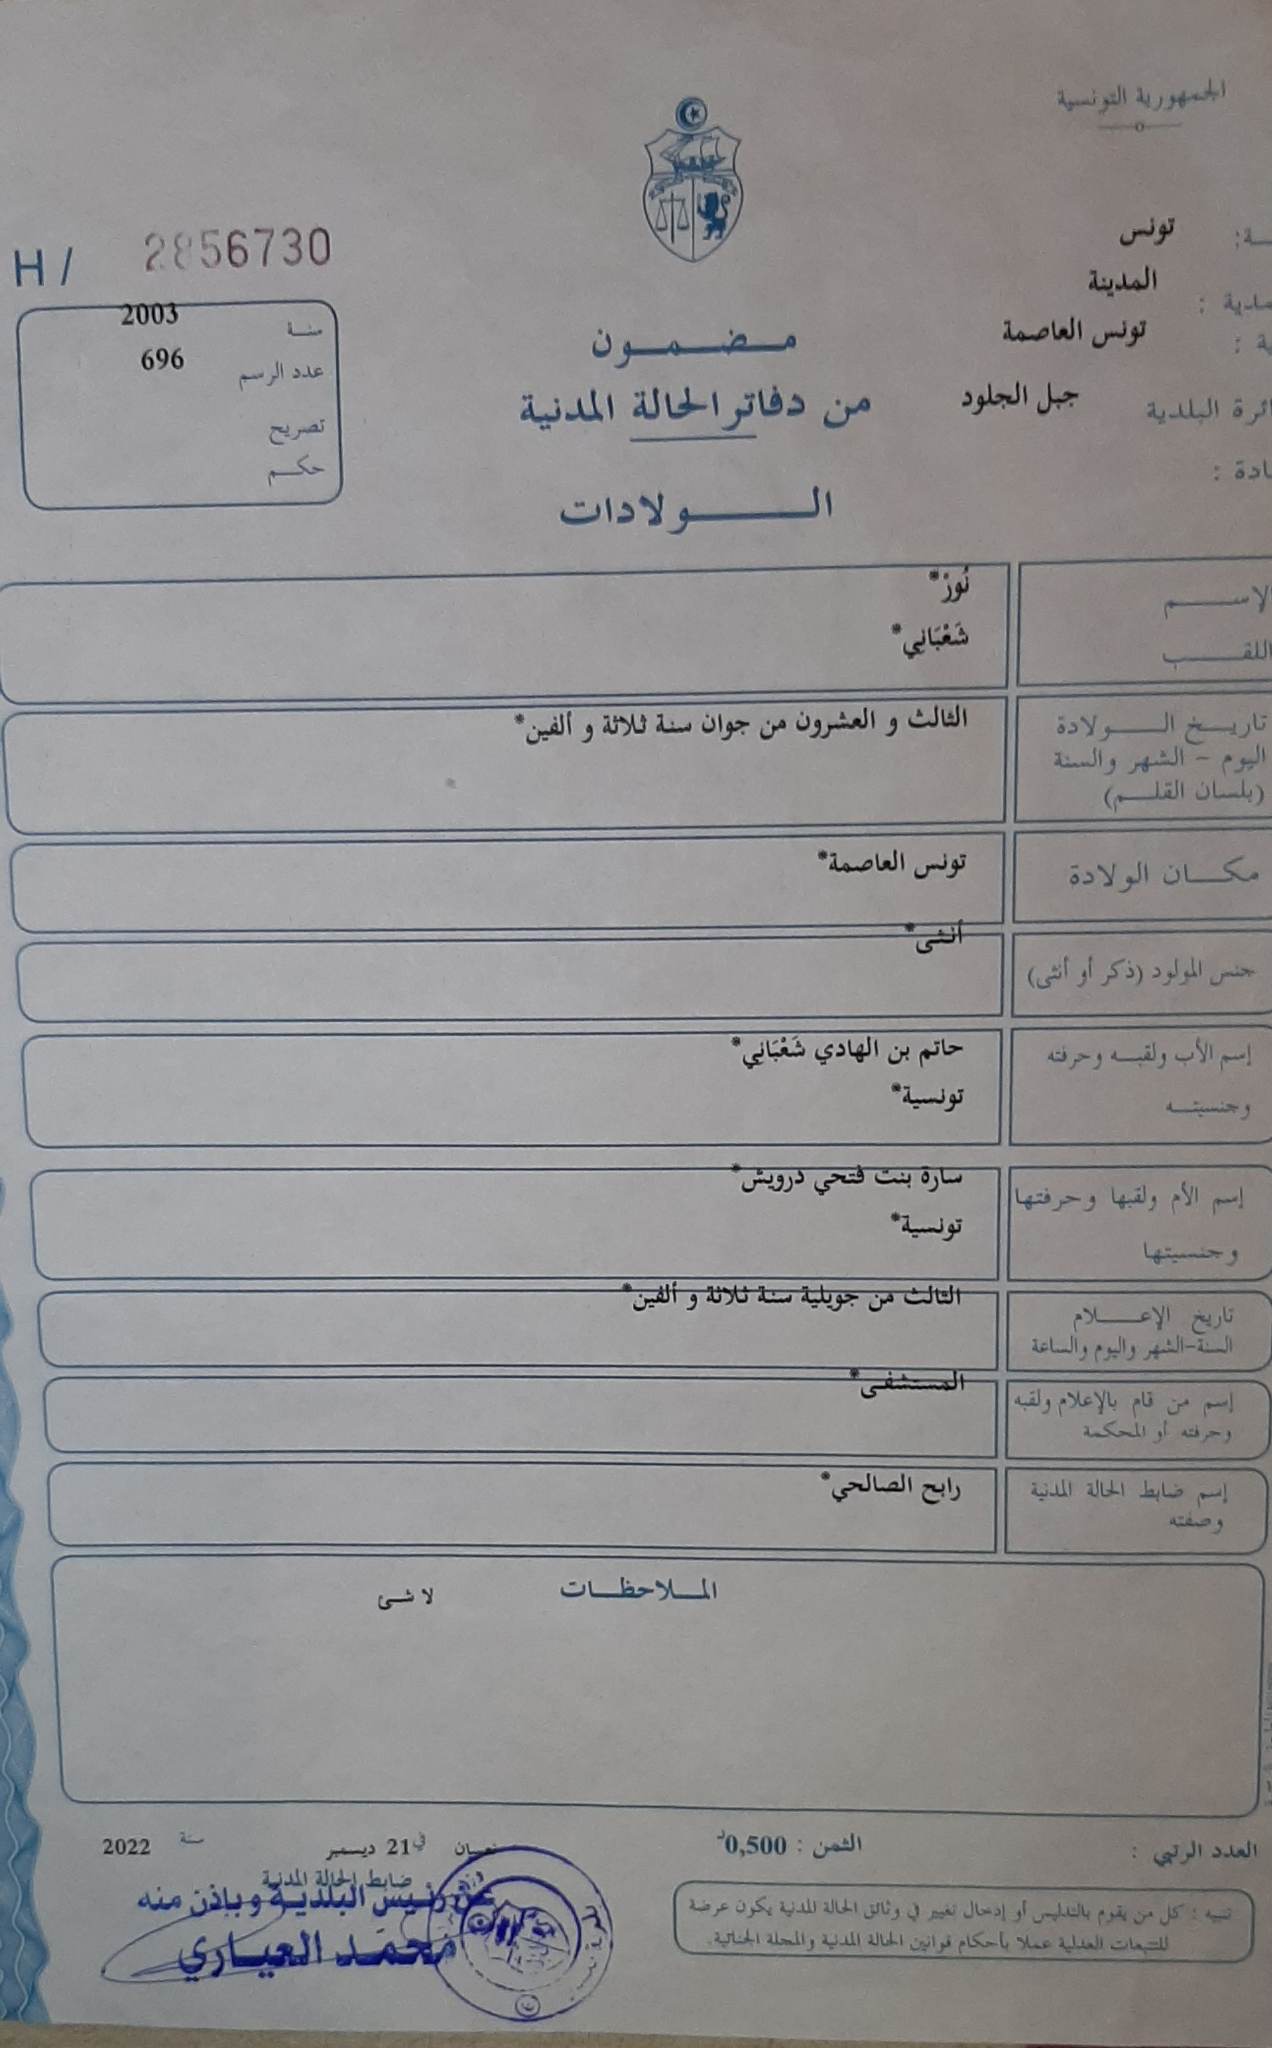 الجمهورية التونسية
تونس
المدينة
ية : تونس العاصمة
البلدية جبل الجلود
H / 2856730
سنة 2003
عدد الرسم 696
تصريح
حكم
مضمون
من دفاتر الحالة المدنية
الولادات
الإسم نُورْ*
اللقب شَعْبَانِي*
تاريخ الولادة الثالث و العشرون من جوان سنة ثلاثة و ألفين*
اليوم - الشهر والسنة
(بلسان القلم)
مكان الولادة تونس العاصمة*
جنس المولود (ذكر أو أنثى) أنثى*
إسم الأب ولقبه وحرفته حاتم بن الهادي شَعْبَانِي*
وجنسيته تونسية*
إسم الأم ولقبها وحرفتها سارة بنت فتحي درويش*
وجنسيتها تونسية*
تاريخ الإعلام الثالث من جويلية سنة ثلاثة و ألفين*
السنة-الشهر واليوم والساعة
إسم من قام بالإعلام ولقبه المستشفى*
وحرفته أو المحكمة
إسم ضابط الحالة المدنية رابح الصالحي*
وصفته
الملاحظات لا شىء
العدد الرتبي :
الثمن : 0,500د
في 21 ديسمبر سنة 2022
ضابط الحالة المدنية
عن رئيس البلدية وبإذن منه
محمد العياري
تنبيه : كل من يقوم بالتدليس أو إدخال تغيير في وثائق الحالة المدنية يكون عرضة
للتتبعات العدلية عملا بأحكام قوانين الحالة المدنية والمجلة الجنائية.